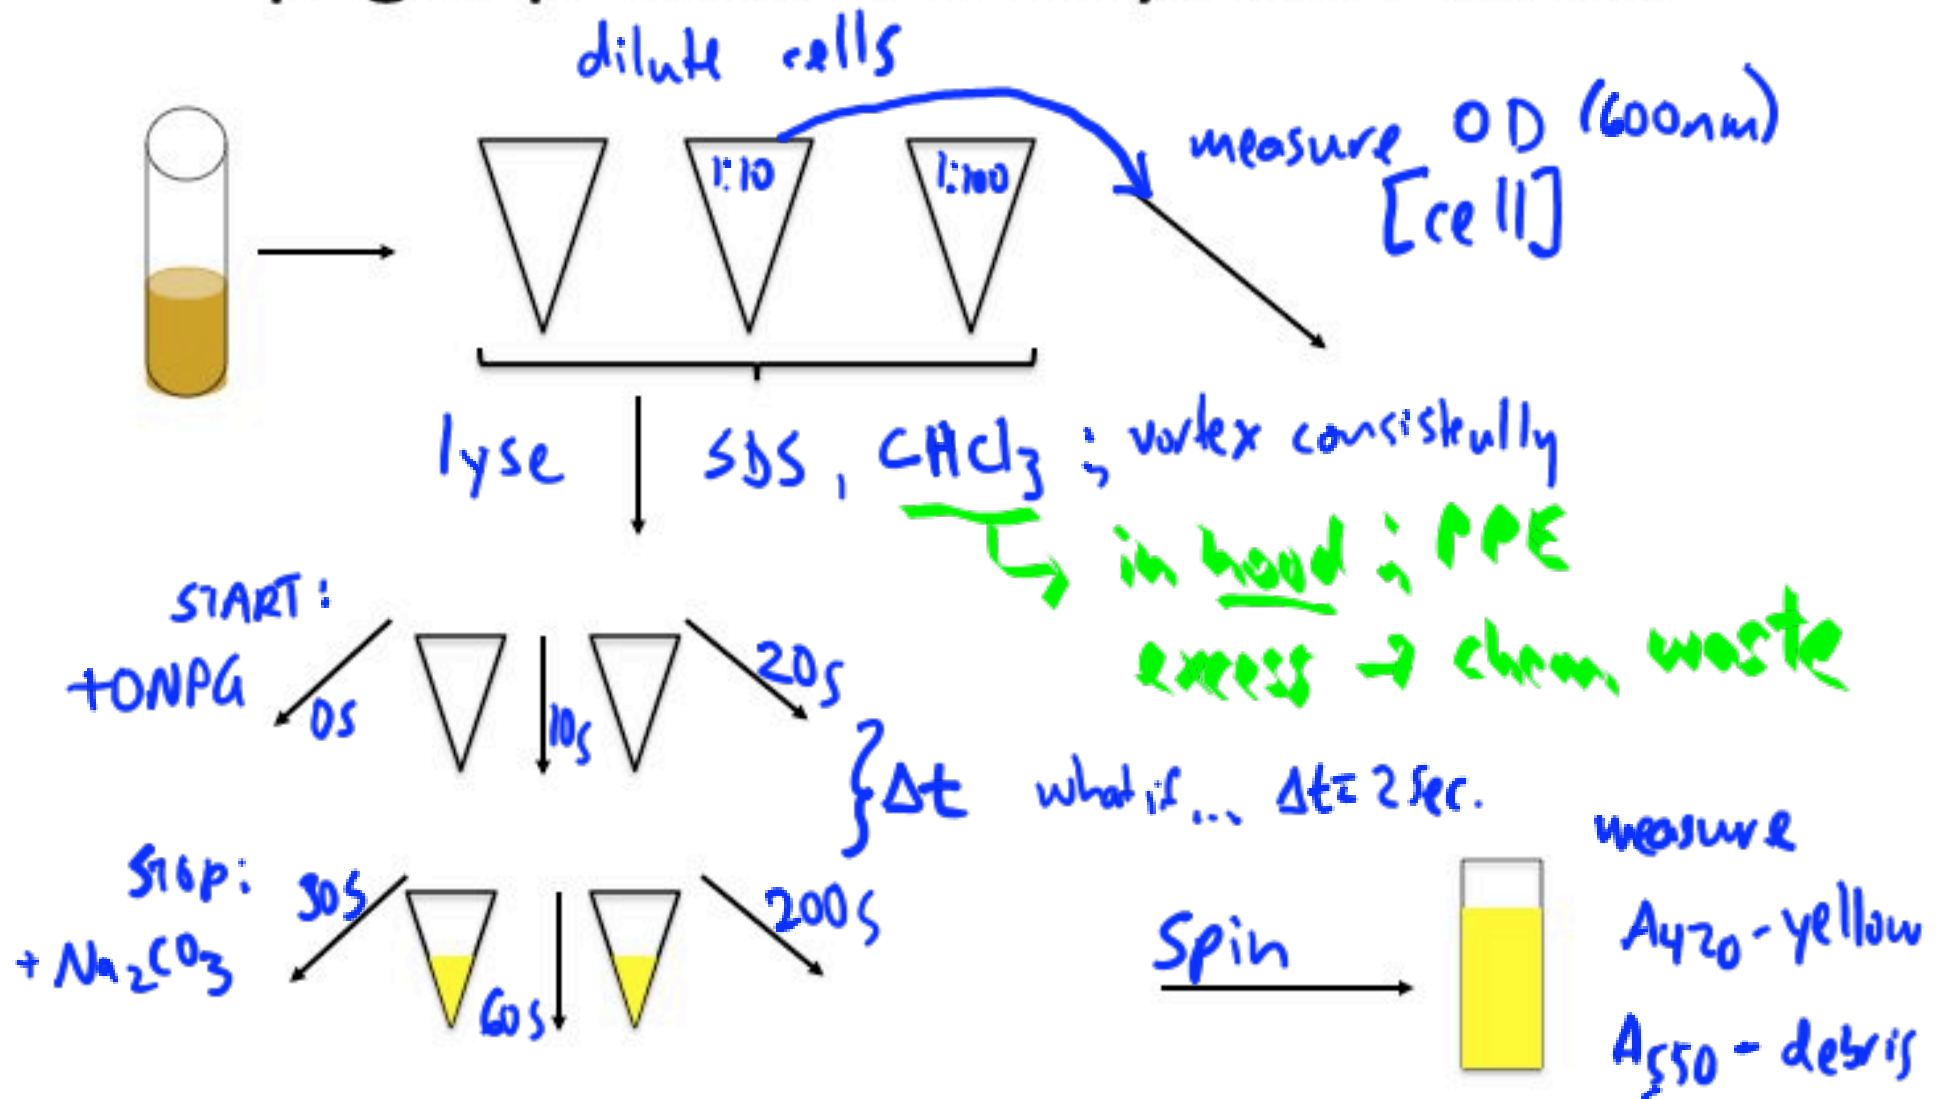 dilute cells
1:10
1:100
measure OD (600nm)
[cell]
lyse SDS, CHCl3 ; vortex consistently
in hood ; PPE
excess → chem. waste
START:
+ONPG
0s
10s
20s
}Δt what if... Δt= 2 sec.
Stop:
+ Na2CO3
30s
60s
200s
Spin
measure
A420 - yellow
A550 - debris